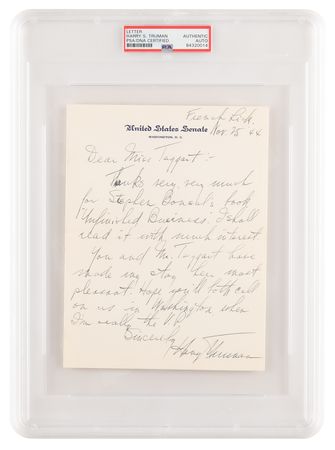 LETTER
HARRY S. TRUMAN
PSA/DNA CERTIFIED
PSA
AUTHENTIC
AUTO
84320014
French Lick
Nov. 25 44
United States Senate
WASHINGTON, D. C.
Dear Miss Taggart:-
Thanks very, very much
for Stephen Bonsal's book
"Unfinished Business." I shall
read it with much interest.
You and Mr. Taggart have
made my stay here most
pleasant. Hope you'll both call
on us in Washington when
I'm really the V.P.
Sincerely
Harry S Truman